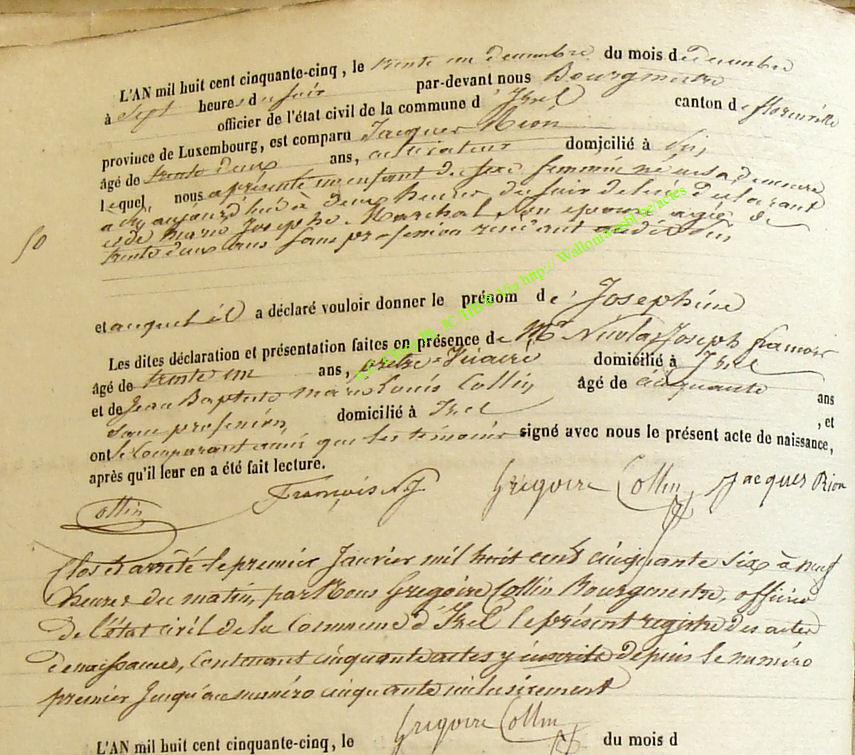 L'AN mil huit cent cinquante-cinq, le trente un decembre du mois d decembre
à sept heures du soir par-devant nous Bourgmestre
officier de l'état civil de la commune d' Izel canton de florenville
province de Luxembourg, est comparu Jacques Rion
âgé de trente deux ans, cultivateur domicilié à Izel
lequel nous a présenté un enfant du sexe féminin né
aujourd'hui à deux heures du soir de lui déclarant
et de Marie Josephe Marchal son épouse agée de
trente deux ans sans profession
50
et auquel il a déclaré vouloir donner le prénom de Josephine
Les dites déclaration et présentation faites en présence de Mr Nicolas Joseph francois
âgé de trente un ans, prêtre vicaire domicilié à Izel
et de Jean Baptiste marie louis Collin âgé de cinquante ans
sans profession domicilié à Izel , et
ont le Comparant ainsi que les témoins signé avec nous le présent acte de naissance,
après qu'il leur en a été fait lecture.
Collin François NJ Grégoire Collin Jacques Rion
Clos et arrêté le premier Janvier mil huit cent cinquante six à neuf
heures du matin, par Nous Gregoire Collin Bourgmestre, officier
de l'état civil de la Commune d'Izel le présent registre des actes
de naissances, Contenant cinquante actes y inscrits depuis le numéro
premier Jusqu'au numéro cinquante inclusivement
Grégoire Collin
L'AN mil huit cent cinquante-cinq, le du mois d